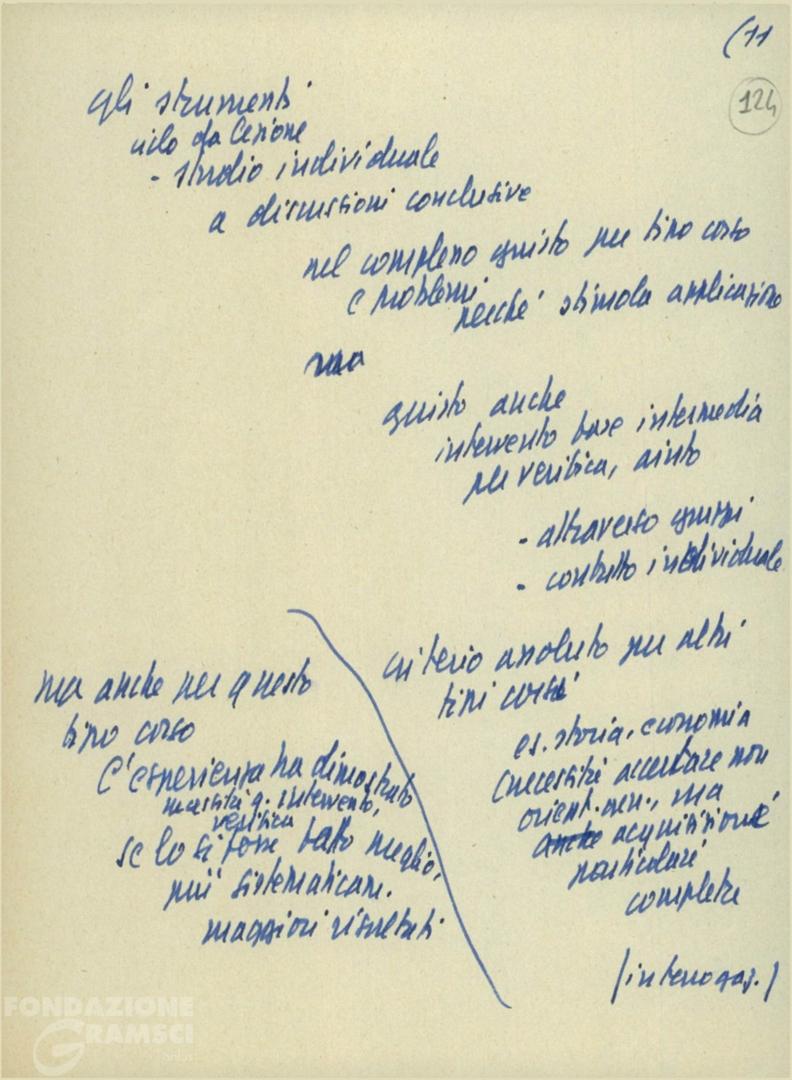 (11
124
gli strumenti
ciclo da lezione
- studio individuale
a discussioni conclusive
nel complesso giusto per tipo corso
e problemi
perché stimola applicazione
ma
giusto anche
intervento base intermedia
per verifica, aiuto
- attraverso gruppi
- contatto individuale
criterio assoluto per altri
tipi corsi
es. storia, economia
(necessità accertare non
orient. gen., ma
anche acquisizioni
particolari
complete
(interrogaz.)
ma anche per questo
tipo corso
l'esperienza ha dimostrato
necessità q. intervento,
verifica
se lo si fosse fatto meglio,
più sistematicam.
maggiori risultati.
FONDAZIONE
GRAMSCI
onlus